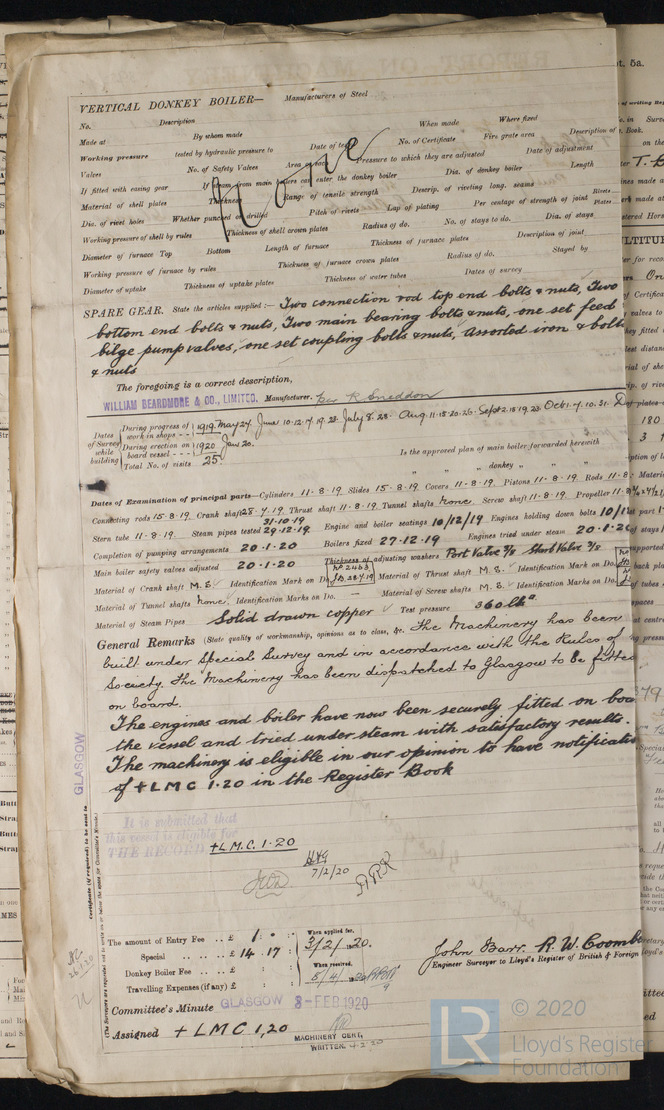 VERTICAL DONKEY BOILER— Manufacturers of Steel
No. Description
Made at By whom made When made Where fixed
Working pressure tested by hydraulic pressure to Date of test No. of Certificate Fire grate area Description of
Valves No. of Safety Valves Area of each Pressure to which they are adjusted Date of adjustment
If fitted with easing gear If steam from main boilers can enter the donkey boiler Dia. of donkey boiler Length
Material of shell plates Thickness Range of tensile strength Descrip. of riveting long. seams
Dia. of rivet holes Whether punched or drilled Pitch of rivets Lap of plating Per centage of strength of joint Rivets Plates
Working pressure of shell by rules Thickness of shell crown plates Radius of do. No. of stays to do. Dia. of stays
Diameter of furnace Top Bottom Length of furnace Thickness of furnace plates Description of joint
Working pressure of furnace by rules Thickness of furnace crown plates Radius of do. Stayed by
Diameter of uptake Thickness of uptake plates Thickness of water tubes Dates of survey
None
SPARE GEAR. State the articles supplied:— Two connection rod top end bolts & nuts, Two
bottom end bolts & nuts, Two main bearing bolts & nuts, one set feed
bilge pump valves, one set coupling bolts & nuts, assorted iron & bolts
& nuts
The foregoing is a correct description,
WILLIAM BEARDMORE & CO., LIMITED. Manufacturer. per R Sneddon
Dates of Survey while building
During progress of work in shops - - 1919. May 27. June 10.12.17.19.23. July 8.28. Aug. 11.15.20.26. Sept 2.15.19.23. Oct 1.7.10.31. D
During erection on board vessel - - - 1920 Jan 20.
Total No. of visits 25. Is the approved plan of main boiler forwarded herewith
" " " donkey " " "
Dates of Examination of principal parts—Cylinders 11-8-19 Slides 15-8-19 Covers 11-8-19 Pistons 11-8-19 Rods 11-8-
Connecting rods 15-8-19 Crank shaft 28-7-19 Thrust shaft 11-8-19 Tunnel shafts None. Screw shaft 11-8-19 Propeller 11-8-
Stern tube 11-8-19 Steam pipes tested 31-10-19 29-12-19 Engine and boiler seatings 10/12/19 Engines holding down bolts 10/12
Completion of pumping arrangements 20-1-20 Boilers fixed 27-12-19 Engines tried under steam 20-1-20
Main boiler safety valves adjusted 20-1-20 Thickness of adjusting washers Port Valve 3/8 Starb Valve 3/8
Material of Crank shaft M.S. Identification Mark on Do. No 2463 JB 28.7.19 Material of Thrust shaft M.S. Identification Mark on Do.
Material of Tunnel shafts None. Identification Marks on Do. — Material of Screw shafts M.S. Identification Marks on Do.
Material of Steam Pipes Solid drawn copper Test pressure 360 lbs
General Remarks (State quality of workmanship, opinions as to class, &c. The Machinery has been
built under Special Survey and in accordance with the Rules of
Society. The Machinery has been dispatched to Glasgow to be fitted
on board.
The engines and boiler have now been securely fitted on boa
the vessel and tried under steam with satisfactory results.
The machinery is eligible in our opinion to have notificatio
of +LMC 1.20 in the Register Book
GLASGOW
It is submitted that
this vessel is eligible for
THE RECORD +L.M.C. 1.20
7/2/20
ARK
Certificate (if required) to be sent to
The amount of Entry Fee .. £ 1 : - : When applied for,
Special .. £ 14 . 17 : 3/2/1920.
Donkey Boiler Fee .. £ : : When received,
Travelling Expenses (if any) £ : : 5/4/1920
John Barr. R. W. Coomb
Engineer Surveyor to Lloyd's Register of British & Foreign
Committee's Minute GLASGOW 3-FEB 1920
Assigned + LMC 1,20
MACHINERY CERT,
WRITTEN. 4.2.20
© 2020
LR Lloyd's Register
Foundation